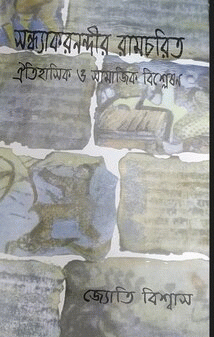 সন্ধ্যাকরনন্দীর রামচরিত
ঐতিহাসিক ও সামাজিক বিশ্লেষণ
জ্যোতি বিশ্বাস